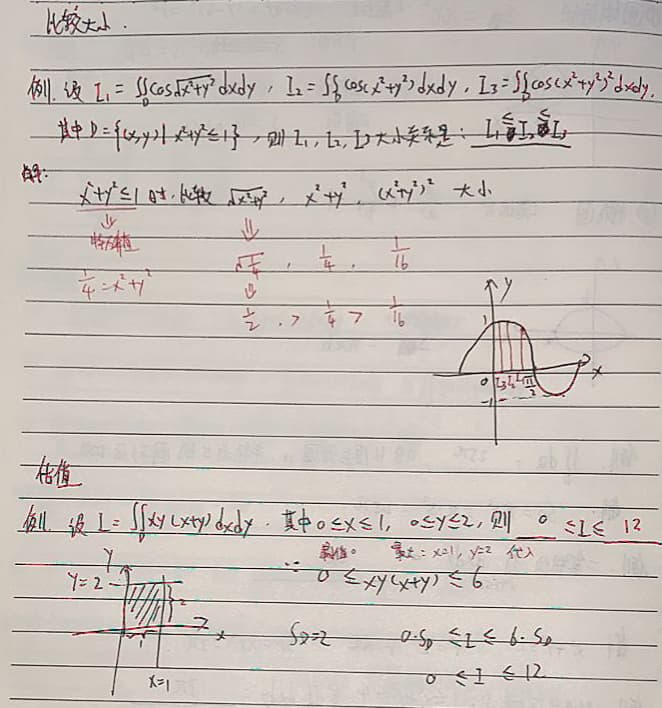 比较大小.
例1. 设 I₁=∬_D cos√(x²+y²) dxdy, I₂=∬_D cos(x²+y²)dxdy, I₃=∬_D cos(x²+y²)²dxdy.
其中 D={(x,y)| x²+y²≤1}, 则 I₁, I₂, I₃ 大小关系是: I₁≤I₂≤I₃
解:
x²+y²≤1 时, 比较 √(x²+y²), x²+y², (x²+y²)² 大小
⇓ ⇓
特殊值 √(1/4), 1/4, 1/16
1/4=x²+y² ⇓
1/2, > 1/4 > 1/16
y
1
0 I₃ I₂ I₁ π/2 x
-1
估值
例1. 设 I=∬_D xy(x+y)dxdy. 其中 0≤x≤1, 0≤y≤2, 则 0 ≤I≤ 12
最大: x=1, y=2 代入
Y ∵ 0≤xy(x+y)≤6
Y=2
2
1 x S_D=2 0·S_D ≤I≤ 6·S_D
x=1 0 ≤I ≤12